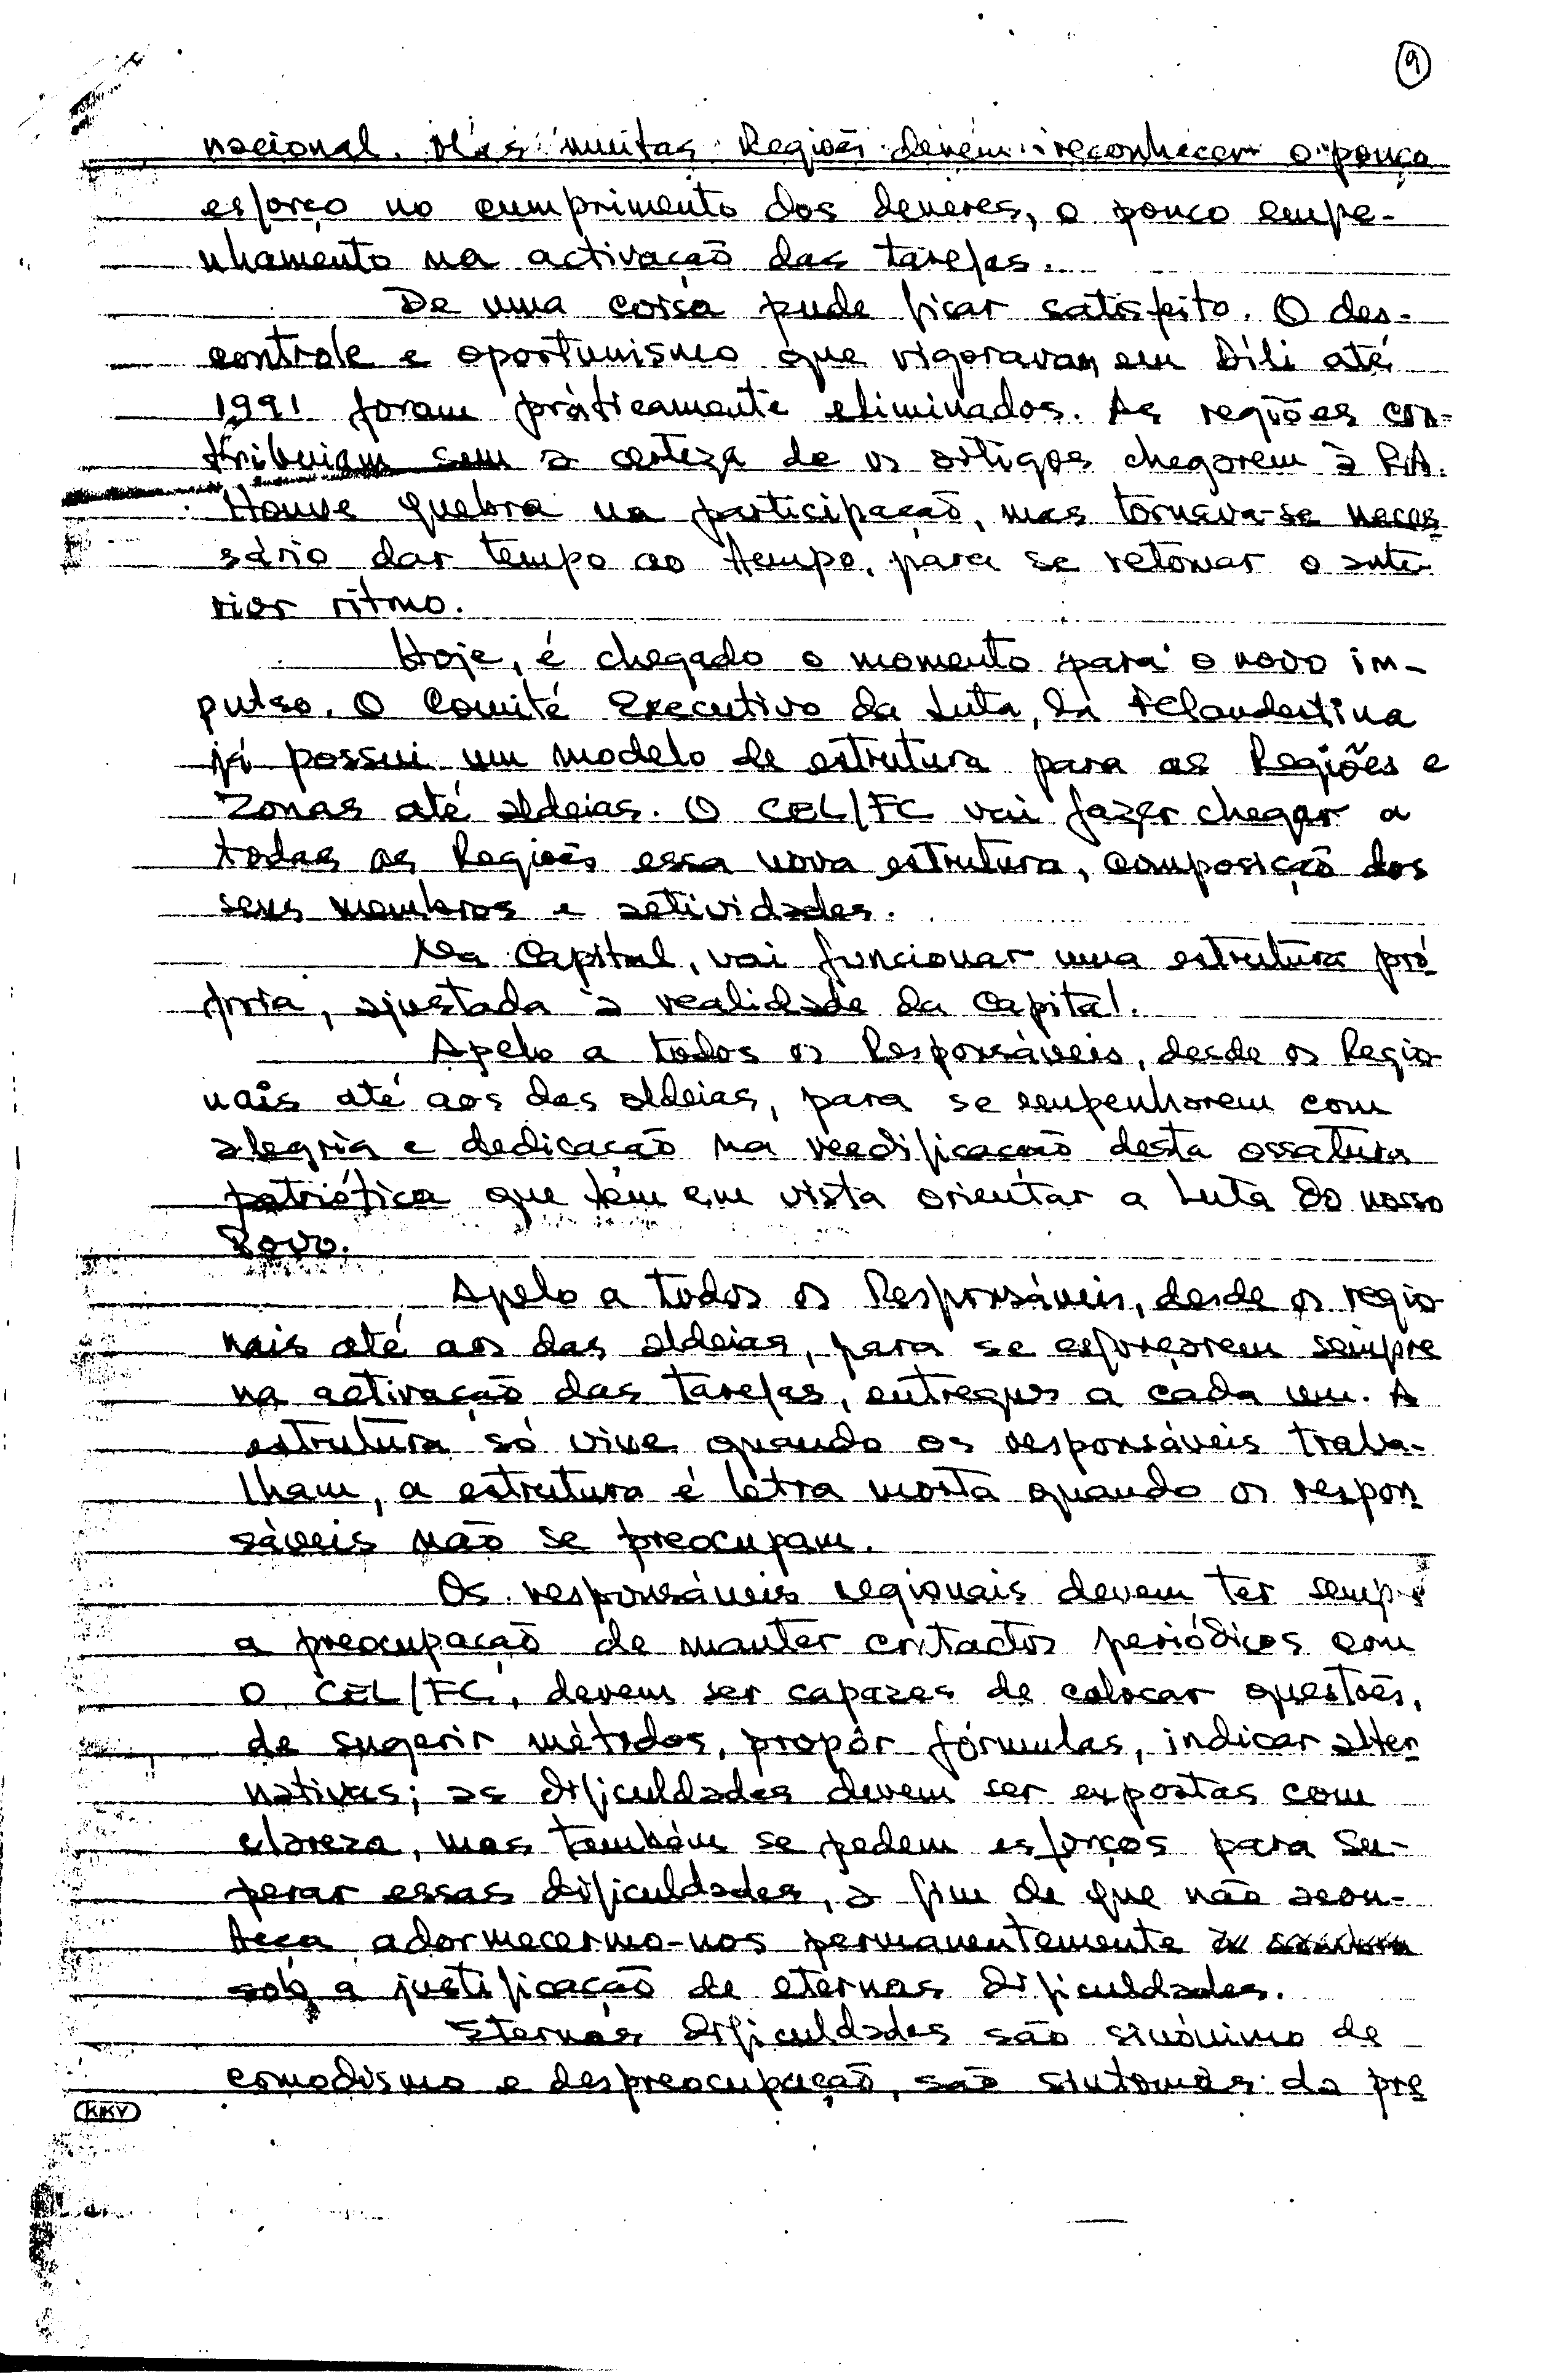 9
nacional. Mas muitas Regiões devem reconhecer o pouco
esforço no cumprimento dos deveres, o pouco empe-
nhamento na activação das tarefas.
De uma coisa pude ficar satisfeito. O des-
controle e oportunismo que vigoravam em Díli até
1991 foram práticamente eliminados. As regiões con-
tribuiam sem a certeza de os artigos chegarem à RA.
Houve quebra na participação, mas tornava-se neces
sário dar tempo ao tempo, para se retomar o ante-
rior ritmo.
Hoje, é chegado o momento para o novo im-
pulso. O Comité Executivo da Luta, na FClandestina
já possui um modelo de estrutura para as Regiões e
Zonas até aldeias. O CEL/FC vai fazer chegar a
todas as Regiões essa nova estrutura, composição dos
seus membros e actividades.
Na Capital, vai funcionar uma estrutura pró
pria, ajustada à realidade da Capital.
Apelo a todos os Responsáveis, desde os Regio-
nais até aos das aldeias, para se empenharem com
alegria e dedicação na reedificação desta ossatura
patriótica que têm em vista orientar a Luta do nosso
Povo.
Apelo a todos os Responsáveis, desde os regio-
nais até aos das aldeias, para se esforçarem sempre
na activação das tarefas, entregues a cada um. A
estrutura só vive quando os responsáveis traba-
lham, a estrutura é letra morta quando os respon
sáveis não se preocupam.
Os responsáveis regionais devem ter sempre
a preocupação de manter contactos periódicos com
o CEL/FC, devem ser capazes de colocar questões,
de sugerir métodos, propôr fórmulas, indicar alter
nativas; as dificuldades devem ser expostas com
clareza, mas também se pedem esforços para su-
perar essas dificuldades, a fim de que não acon-
teça adormecermo-nos permanentemente
sob a justificação de eternas dificuldades.
Eternas dificuldades são sinónimo de
comodismo e despreocupação, são sintomas da pre
KKV